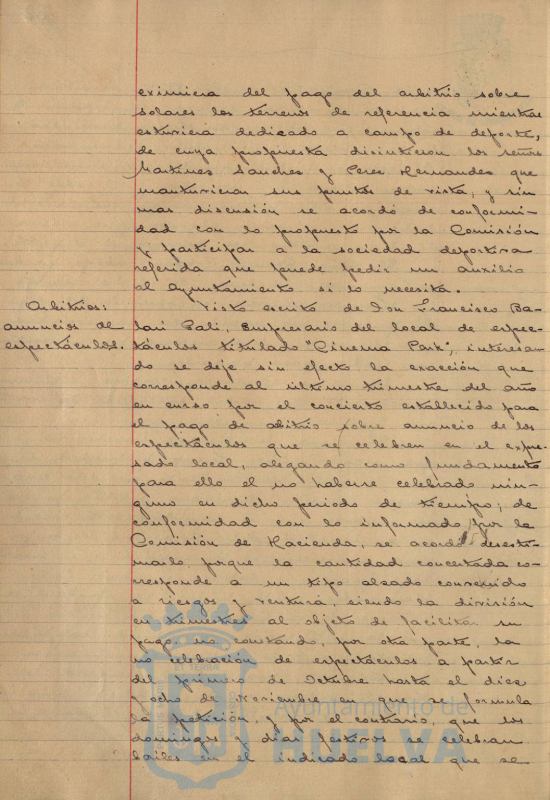 eximiera del pago del arbitrio sobre
solares los terrenos de referencia mientras
estuviera dedicado a campo de deporte,
de cuya propuesta disintieron los señores
Martinez Sanchez y Perez Hernandez que
mantuvieron sus puntos de vista, y sin
mas discusión se acordó de conformi-
dad con lo propuesto por la Comisión
y participar a la sociedad deportiva
referida que puede pedir un auxilio
al Ayuntamiento si lo necesita.
Arbitrios:
anuncios de
espectáculos.
Visto escrito de Don Francisco Ba-
Empresario del local de espec-
táculos titulado "Cinema Park", interesan-
do se deje sin efecto la exacción que
corresponde al último trimestre del año
en curso por el concierto establecido para
el pago de abitrio sobre anuncio de los
espectáculos que se celebren en el expre-
sado local, alegando como fundamento
para ello el no haberse celebrado nin-
guno en dicho periodo de tiempo; de
conformidad con lo informado por la
Comisión de Hacienda, se acordó desesti-
marlo, porque la cantidad concertada co-
rresponde a un tipo alzado convenido
a riesgo y ventura, siendo la división
en trimestres al objeto de facilitar su
pago, no constando, por otra parte, la
no celebración de espectáculos a partir
del primero de Octubre hasta el diez
y ocho de Noviembre en que se formula
la petición, y por el contrario, que los
domingos y dias festivos se celebran
bailes en el indicado local que se
Ayuntamiento de
HUELVA